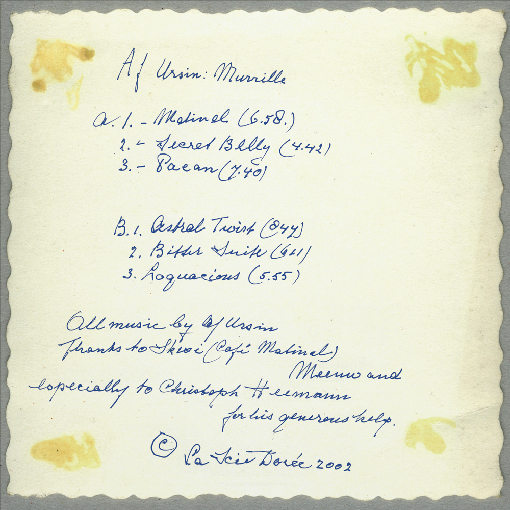 Af Ursin: Murrille
A. 1. - Matinal (6.58.)
2. - Secret Belly (4.42)
3. - Paean (7.40)
B. 1. Astral Twist (8.47)
2. Bitter Suite (6.11)
3. Loquacious (5.55)
All music by Af Ursin
Thanks to (Café Matinal)
and
especially to Christoph Heemann
for his generous help.
© La Scie Dorée 2002